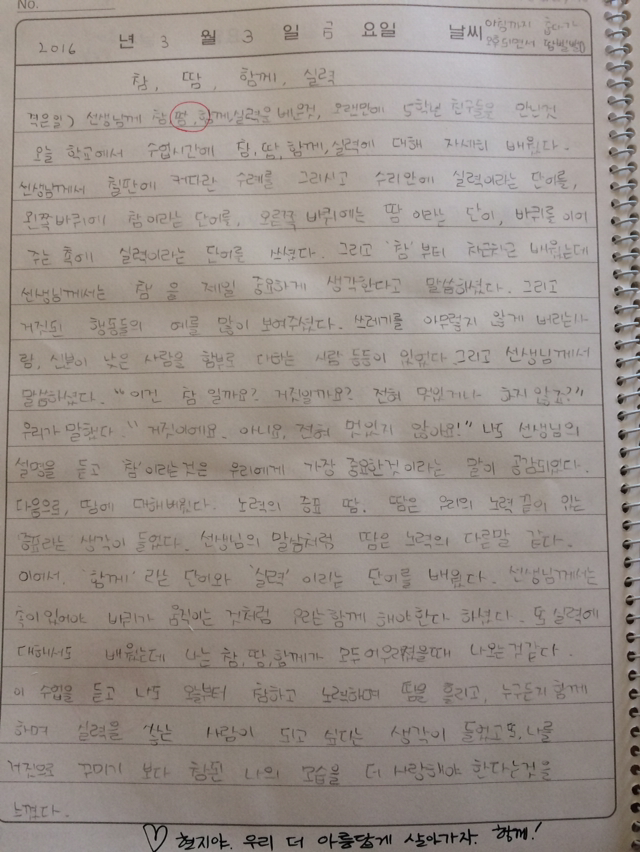 No.
2016 년 3 월 3 일 금 요일 날씨 아침까지 춥다가
오후되면서 땀삘삘
참, 땀, 함께, 실력
적은일) 선생님께 참, 땀, 함께, 실력을 배운것, 오랜만에 5학년 친구들을 만난것
오늘 학교에서 수업시간에 참, 땀, 함께, 실력에 대해 자세히 배웠다.
선생님께서 칠판에 커다란 수레를 그리시고 수리안에 실력이라는 단어를,
왼쪽바퀴에 참이라는 단어를, 오른쪽 바퀴에는 땀 이라는 단어, 바퀴를 이어
주는 축에 실력이라는 단어를 쓰셨다. 그리고 '참'부터 차근차근 배웠는데
선생님께서는 참을 제일 중요하게 생각한다고 말씀하셨다. 그리고
거짓된 행동들의 예를 많이 보여주셨다. 쓰레기를 아무렇지 않게 버리는사
람, 신분이 낮은 사람을 함부로 대하는 사람 등등이 있었다. 그리고 선생님께서
말씀하셨다. "이건 참 일까요? 거짓일까요? 전혀 멋있거나 하지 않죠?"
우리가 말했다. "거짓이에요. 아니요, 전혀 멋있지 않아요!" 나도 선생님의
설명을 듣고 참'이라는것은 우리에게 가장 중요한것 이라는 말이 공감되었다.
다음으로, 땀에 대해배웠다. 노력의 증표 땀. 땀은 우리의 노력 끝에 있는
증표라는 생각이 들었다. 선생님의 말씀처럼 땀은 노력의 다른말 같다.
이어서. '함께' 라는 단어와 '실력' 이라는 단어를 배웠다. 선생님께서는
축이있어야 바퀴가 움직이는 것처럼 우리는함께 해야한다 하셨다. 또 실력에
대해서도 배웠는데 나는 참, 땀, 함께가 모두이루어졌을때 나오는것같다.
이 수업을 듣고 나도 오늘부터 참하고 노력하며 땀을 흘리고, 누구든지 함께
하며 실력을 쌓는 사람이 되고 싶다는 생각이 들었고 또, 나를
거짓으로 꾸미기 보다 참된 나의 모습을 더 사랑해야 한다는것을
느꼈다.
♡ 현지야. 우리 더 아름답게 살아가자. 함께!